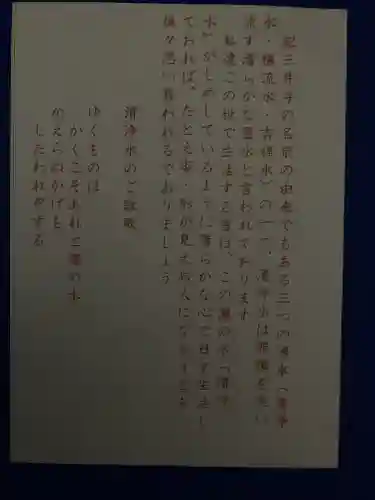 紀三井寺の名前の由来でもある三つの井水(清浄
水・楊流水・吉祥水)の一つ、清浄水は罪障を洗い
流す清らかな霊水と言われております
私達この世で生活する者は、この瀧の水(清浄
水)がしめしているように清らかな心で日々生活し
ておれば、たとえ姿・形が見えぬ人になろうとも
後々思い慕われるでありましょう
清浄水のご詠歌
ゆくものは
かくこそあれと瀧の水
かえらぬかげも
したわれぞする